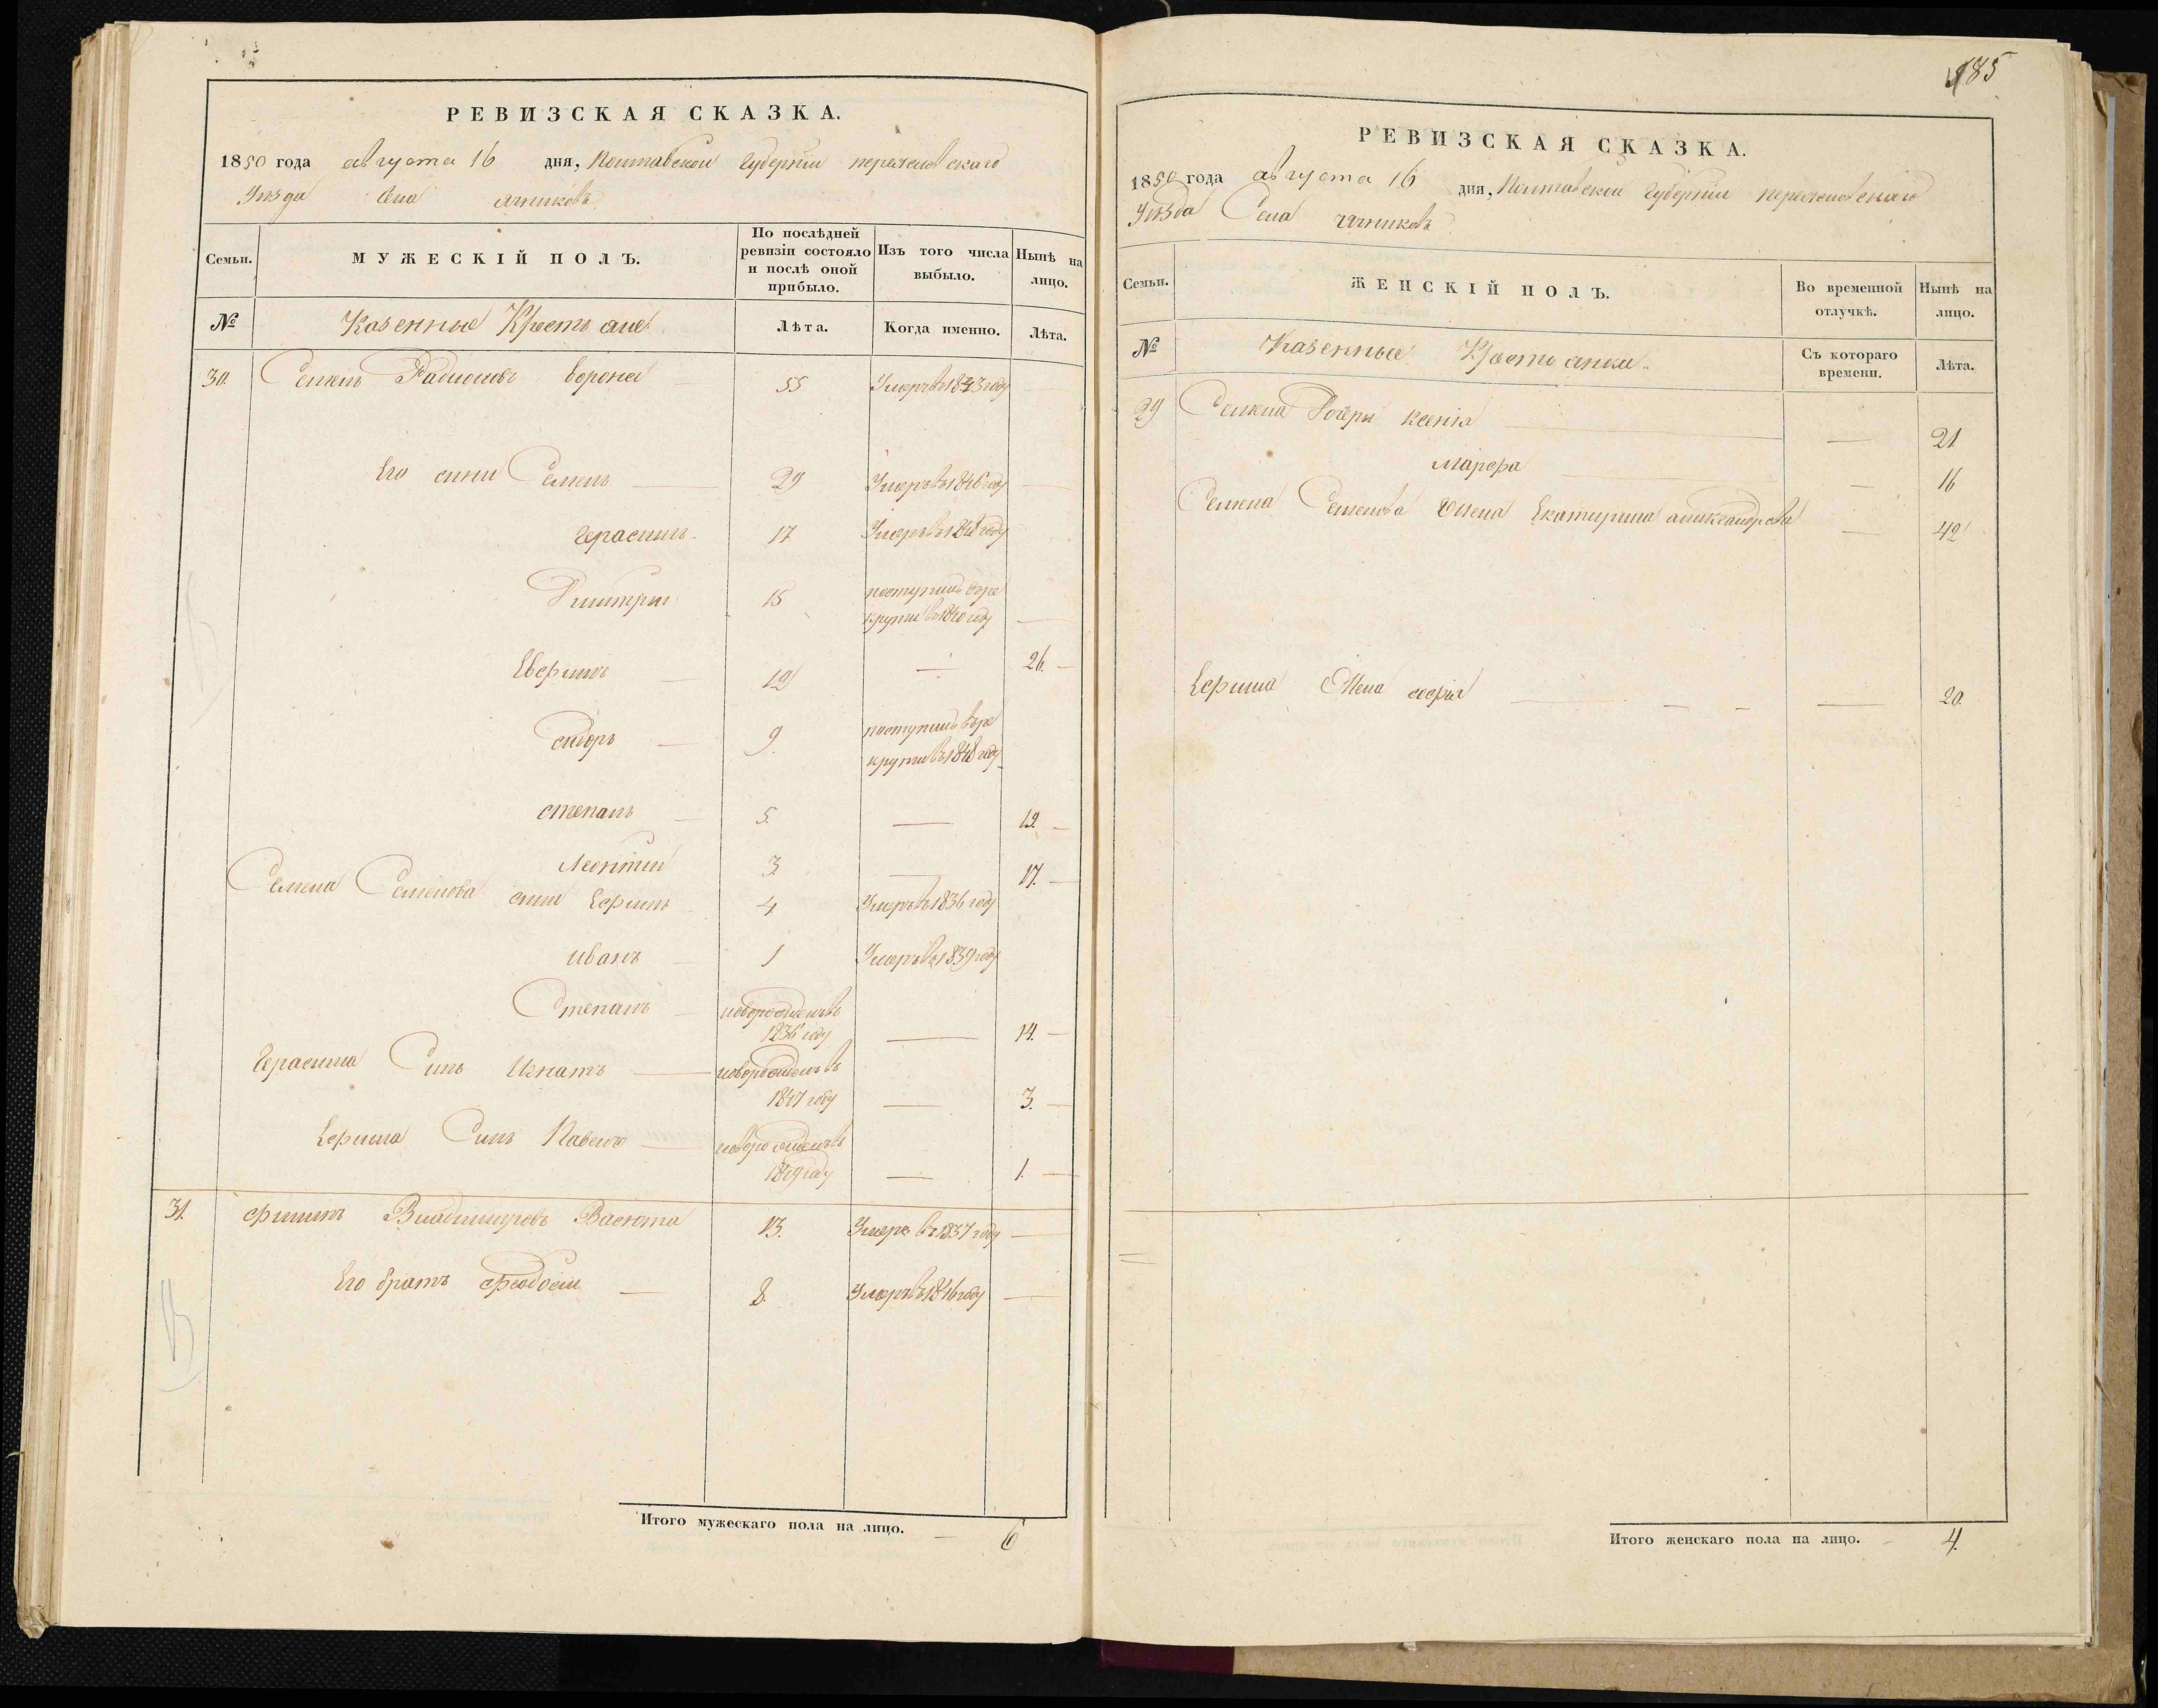 РЕВИЗСКАЯ СКАЗКА.
1850 года августа 16 дня, Полтавской Губерніи переяславскаго
Уѣзда Села
Семьи. МУЖЕСКІЙ ПОЛЪ. По послѣдней ревизіи состояло и послѣ оной прибыло. Изъ того числа выбыло. Нынѣ на лицо.
№ Казенные Крестьяне Лѣта. Когда именно. Лѣта.
30. Семенъ Радионовъ Ворона 55 Умеръ въ 1843 году
Его сини Семенъ 29 Умеръ въ 1846 году
Герасимъ. 17 Умеръ въ 1848 году
Дмитрий 15 поступилъ въ ре
круты въ 1840 году
Евфимъ 12 — 26.
сидоръ 9. поступилъ въ ре
круты въ 1848 году
степанъ 5. — 19.
Леонтий 3. — 17.
Семена Семенова сини Ефимъ 4. Умеръ въ 1836 году
иванъ 1 Умеръ въ 1839 году
Степанъ новорожденъ въ
1836 году — 14.
Герасима Синъ Игнатъ новорожденъ въ
1847 году — 3.
Ефима Синъ Павелъ новорожденъ въ
1849 году — 1.
31. Филипъ Владимировъ Васюта 13. Умеръ въ 1837 году
Его братъ Феодосий 8. Умеръ въ 1846 году
Итого мужескаго пола на лицо. — 6
185
РЕВИЗСКАЯ СКАЗКА.
1850 года августа 16 дня, Полтавской Губерніи переяславскаго
Уѣзда Села
Семьи. ЖЕНСКІЙ ПОЛЪ. Во временной отлучкѣ. Нынѣ на лицо.
№ Казенные Крестьянки. Съ котораго времени. Лѣта.
29 Семена Дочери ксенія — 21
Марфа — 16
Семена Семенова Жена Екатирина александрова — 42
Ефима Жена софия — 20.
Итого женскаго пола на лицо. — 4.